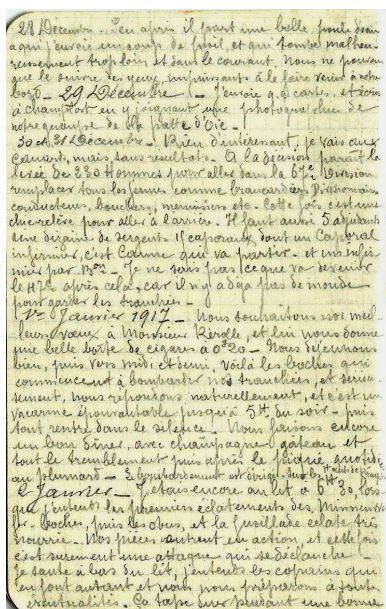 28 Décembre - Peu après il part une belle poule d'eau
à qui j'envoie un coup de fusil, et qui tombe malheu-
reusement trop loin et dans le courant. Nous ne pouvons
que le suivre des yeux, impuissants à le faire venir à notre
bord - 29 Décembre - J'envoie q.q. cartes, et écris
à en y joignant une photographie de
notre de la patte d'Oie -
30 et 31 Décembre - Rien d'intéressant, je vais aux
canards, mais sans résultats - A la décision paraît la
levée de 230 Hommes pour aller dans la 67e Division
remplacer tous les jeunes comme brancardiers Divisionnaires
conducteurs, bouchers, menuisiers etc. Cette fois c'est une
chic relève pour aller à l'arrière. Il faut aussi 5 adjudants
une dizaine de sergents 15 caporaux dont un Caporal
infirmier, c'est qui va partir - et un infir-
mier par Bon - Je ne sais pas ce que va devenir
le après cela, car il n'y a déjà pas de monde
pour garder les tranchées -
1er Janvier 1917 - Nous souhaitons nos meil-
leurs vœux à Monsieur et lui nous donne
une belle boîte de cigares à 0f20 - Nous déjeunons
bien, puis vers midi et demi, voilà les boches qui
commencent à bombarder nos tranchées, et sérieu-
sement, nous répondons, naturellement, et c'est un
vacarme épouvantable jusqu'à 5H du soir - puis
tout rentre dans le silence - Nous faisons encore
un bon dîner, avec champagne gâteau et
tout le tremblement puis après le quotidien
au plumard - Le bombardement est dirigé sur
2 Janvier - J'étais encore au lit à 6H30 lors
que j'entends les premiers éclatements des Minnen
boches, puis les obus, et la fusillade éclate très
nourrie - Nos pièces entrent en action, et cette fois
c'est sûrement une attaque qui se déclanche -
Je saute à bas du lit, j'entends les copains qui
en font autant et nous nous préparons à toute
éventualités - Ça tape dur pendant une bonne